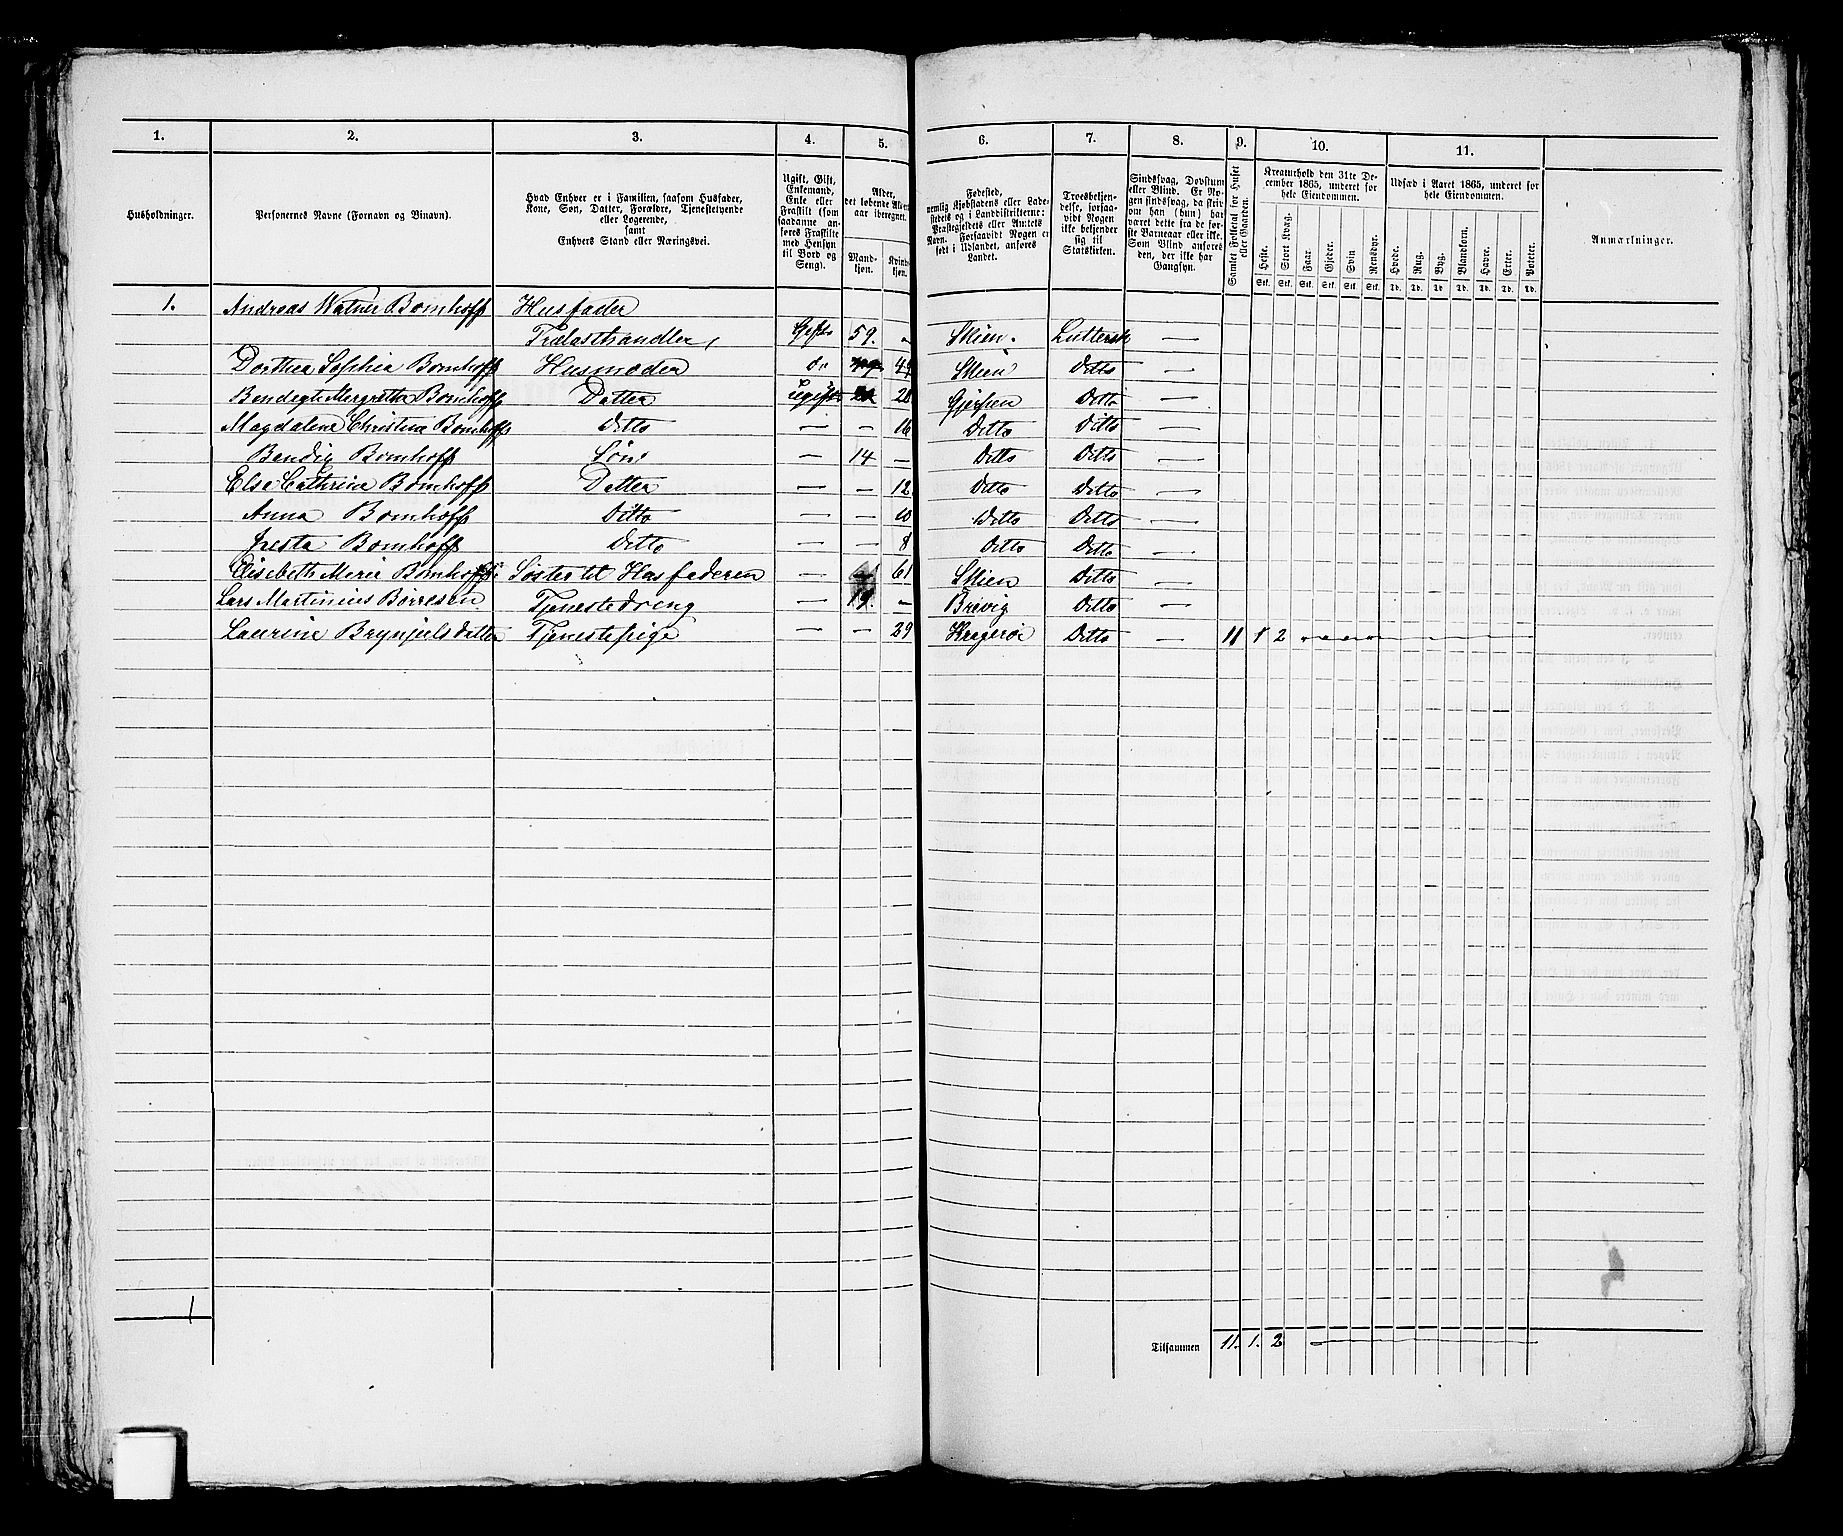 1. 2. 3. 4. 5. 6. 7. 8. 9. 10. 11.
Husholdninger.
Personernes Navne (Fornavn og Binavn).
Hvad Enhver er i Familien, saasom Husfader,
Kone, Søn, Datter, Forældre, Tjenestetyende
eller Logerende,
samt
Enhvers Stand eller Næringsvei.
Ugift, Gift,
Enkemand,
Enke eller
Fraskilt (som
saadanne an-
føres Fraskilte
med Hensyn
til Bord og
Seng).
Alder,
det løbende Alders-
aar iberegnet.
Mand-
kjøn.
Kvinde-
kjøn.
Fødested,
nemlig Kjøbstadens eller Lade-
stedets og i Landdistrikterne:
Præstegjeldets eller Amtets
Navn. Forsaavidt Nogen er
født i Udlandet, anføres
Landet.
Troesbekjen-
delse, forsaa-
vidt Nogen
ikke bekjender
sig til
Statskirken.
Sindssvag, Døvstum
eller Blind. Er No-
gen sindssvag, da skriv
om han (hun) har
været dette fra de før-
ste Barneaar eller ikke.
Som Blind anføres
den, der ikke har
Gangsyn.
Samlet Folketal for Huset
eller Gaarden.
Kreaturhold den 31te De-
cember 1865, underet for
hele Eiendommen.
Heste. Stort Kvæg. Faar. Gjeder. Svin. Rensdyr.
Stk. Stk. Stk. Stk. Stk. Stk.
Udsæd i Aaret 1865, underet for
hele Eiendommen.
Hvede. Rug. Byg. Blandkorn. Havre. Erter. Poteter.
Td. Td. Td. Td. Td. Td. Td.
Anmærkninger.
1. Andreas Bomhoff Husfader
Trælasthandler, Gift 59. - Skien. Luttersk —
Dorthea Sophia Bomhoff Husmoder do Skien Ditto —
Bendegte Mergretha Bomhoff Datter ugift Gjerpen Ditto —
Magdalene Christine Bomhoff Ditto — — 16 Ditto Ditto —
Bendix Bomhoff Søn — 14 — Ditto Ditto —
Else Cathrine Bomhoff Datter — — 12. Ditto Ditto —
Anna Bomhoff Ditto — — 10 Ditto Ditto —
Bomhoff Ditto — — 8 Ditto Ditto —
Elisebeth Merie Bomhoff Søster til Husfaderen — 61 Skien Ditto —
Lars Martinius Børresen Tjenestedreng — 19. — Brevig Ditto —
Laurine Brynjulsdatter Tjenestepige — — 29 Kragerøe Ditto — 11 1 2
1
Tilsammen 11. 1. 2